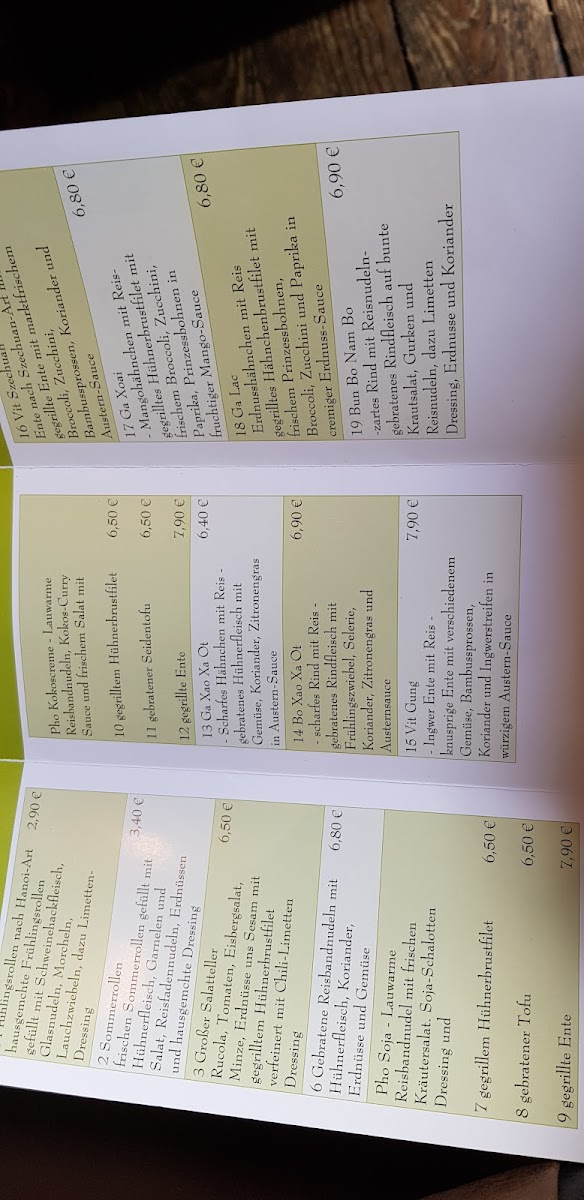 hausgemchte Frühlingsrollen
gefüllt mit Schweinehackfleisch,
Glasnudeln, Morcheln,
Lauchzwiebeln, dazu Limetten-
Dressing
2,90 €
2 Sommerrollen
frischen Sommerrollen gefüllt mit
Hühnerfleisch, Garnelen und
Salat, Reisfadennudeln, Erdnüssen
und hausgemchte Dressing
3,40 €
3 Großer Salatteller
Rucola, Tomaten, Eisbergsalat,
Minze, Erdnüsse uns Sesam mit
gegrilltem Hühnerbrustfilet
verfeinert mit Chili-Limetten
Dressing
6,50 €
6 Gebratene Reisbandnudeln mit
Hühnerfleisch, Koriander,
Erdnüsse und Gemüse
6,80 €
Pho Soja - Lauwarme
Reisbandnudel mit frischen
Kräutersalat. Soja-Schalotten
Dressing und
7 gegrillem Hühnerbrustfilet 6,50 €
8 gebratener Tofu 6,50 €
9 gegrillte Ente 7,90 €
Pho Kokoscreme - Lauwarme
Reisbandnudeln, Kokos-Curry
Sauce und frischem Salat mit
10 gegrilltem Hühnerbrustfilet 6,50 €
11 gebratener Seidentofu 6,50 €
12 gegrillte Ente 7,90 €
13 Ga Xao Xa Ot 6,40 €
- Scharfes Hähnchen mit Reis -
gebratenes Hühnerfleisch mit
Gemüse, Koriander, Zitronengras
in Austern-Sauce
14 Bo Xao Xa Ot 6,90 €
- scharfes Rind mit Reis -
gebratenes Rindfleisch mit
Frühlingszwiebel, Selerie,
Koriander, Zitronengras und
Austernsauce
15 Vit Gung 7,90 €
- Ingwer Ente mit Reis -
knusprige Ente mit verschiedenem
Gemüse, Bambussprossen,
Koriander und Ingwerstreifen in
würzigem Austern-Sauce
16 Vit Szechuan
Ente nach Szechuan-Art
gegrillte Ente mit marktfrischem
Broccoli, Zucchini,
Bambussprossen, Koriander und
Austern-Sauce
6,80 €
17 Ga Xoai
- Mangohähnchen mit Reis-
gegrilltes Hühnerbrustfilet mit
frischem Broccoli, Zucchini,
Paprika, Prinzessbohnen in
fruchtiger Mango-Sauce
6,80 €
18 Ga Lac
Erdnusshähnchen mit Reis
gegrilltes Hähnchenbrustfilet mit
frischem Prinzessbohnen,
Broccoli, Zucchini und Paprika in
cremiger Erdnuss-Sauce
6,90 €
19 Bun Bo Nam Bo
-zartes Rind mit Reisnudeln-
gebratenes Rindfleisch auf bunte
Krautsalat, Gurken und
Reisnudeln, dazu Limetten
Dressing, Erdnusse und Koriander